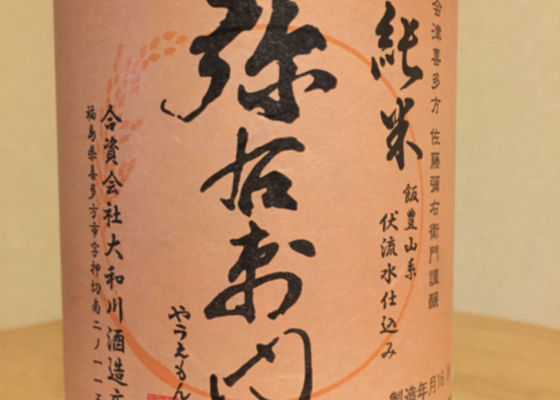 会津喜多方 佐藤彌右衛門謹醸
純米
飯豊山系
伏流水仕込み
弥右衛門
やうえもん
合資会社大和川酒造店
福島県喜多方市字押切南二ノ一一
製造年月16.